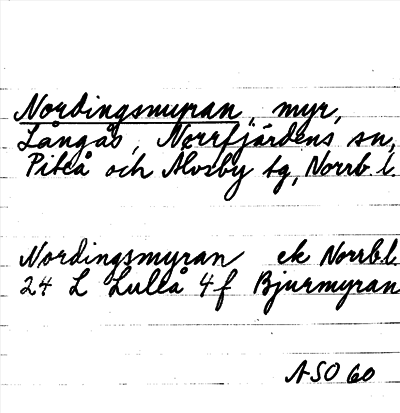 Nordingsmyran, myr,
Långås, Norrfjärdens sn,
Piteå och Älvsby tg, Norrb. l.
Nordingsmyran ek Norrb.l.
24 L Luleå 4f Bjurmyran
ASO 60